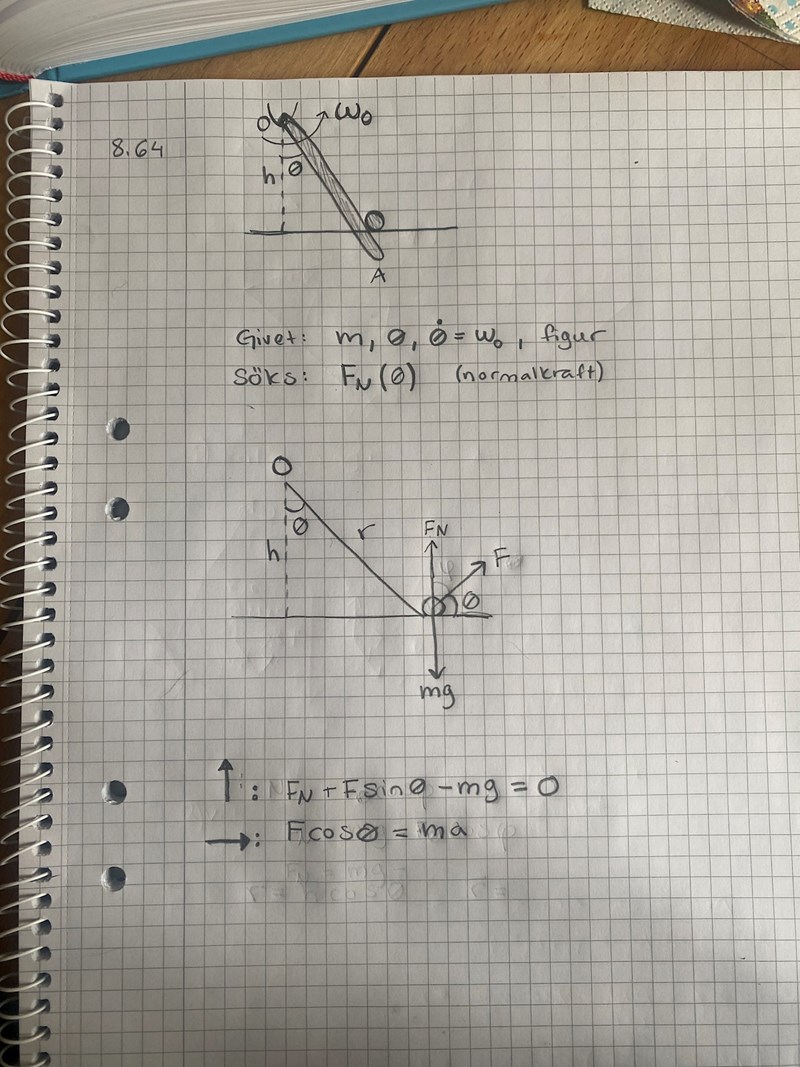 8.64
O ω₀
h θ
A
Givet: m, θ, θ̇ = ω₀, figur
Söks: F_N(θ) (normalkraft)
O
θ r
h
F_N
F
θ
mg
↑: F_N + F sinθ - mg = 0
→: F cosθ = ma